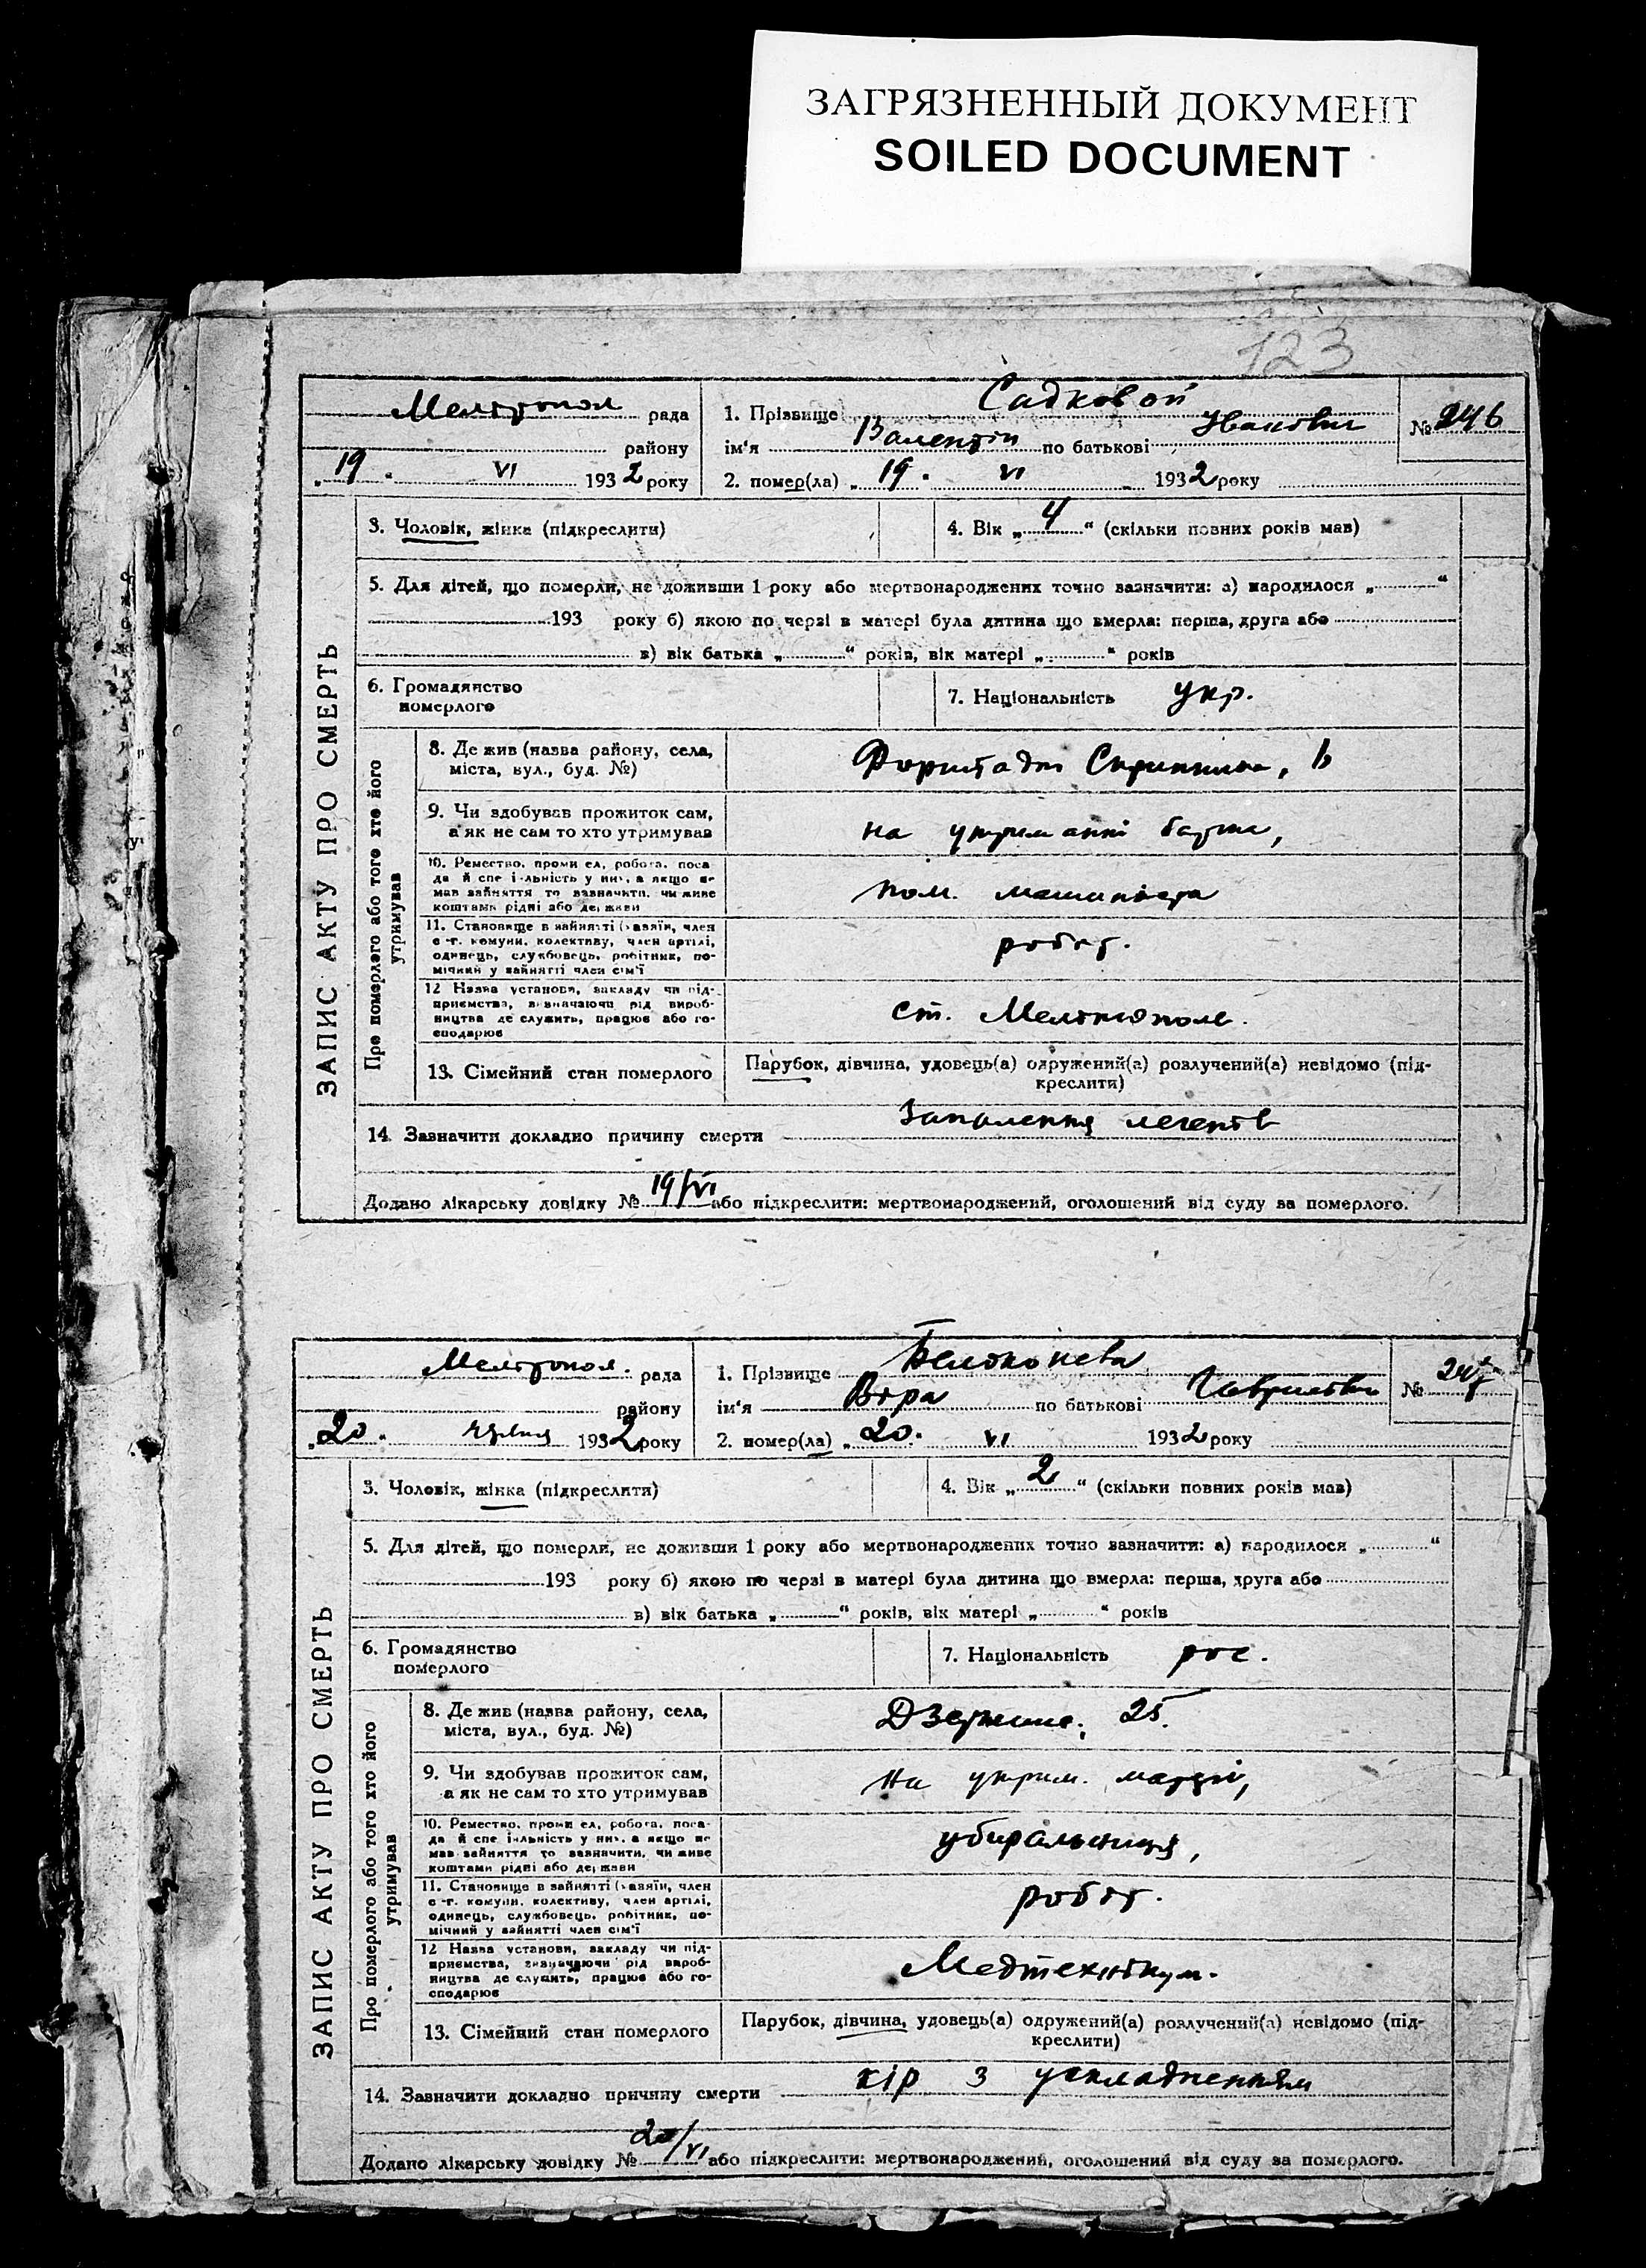 ЗАГРЯЗНЕННЫЙ ДОКУМЕНТ
SOILED DOCUMENT
123
ЗАПИС АКТУ ПРО СМЕРТЬ
Мелітопол рада
району
„19“ VI 1932 року
1. Прізвище Садковой
ім‘я Валентін по батькові Іванович
№ 246
2. помер(ла) „19“ VI 1932 року
3. Чоловік, жінка (підкреслити)
4. Вік „4“ (скільки повних років мав)
5. Для дітей, що померли, не доживши 1 року або мертвонароджених точно зазначити: а) народилося „ “
193 року б) якою по черзі в матері була дитина що вмерла: перша, друга або
в) вік батька „ “ років, вік матері „ “ років
6. Громадянство
померлого
7. Національність укр.
Про померлого або того хто його
утримував
8. Де жив (назва району, села,
міста, вул., буд. №)
9. Чи здобував прожиток сам,
а як не сам то хто утримував
на утриманні батька,
10. Ремество, промисел, робота, поса-
да й спеціяльність у них, а якщо не
мав зайняття то зазначити, чи живе
коштами рідні або держави
пом. машиніста
11. Становище в занятті (хазяїн, член
с.-г. комуни, колективу, член артілі,
одинець, службовець, робітник, по-
мічний у зайнятті член сім‘ї
робіт.
12 Назва установи, закладу чи під-
приємства, визначаючи рід вироб-
ництва де служить, працює або го-
сподарює
ст. Мелітополь.
13. Сімейний стан померлого
Парубок, дівчина, удовець(а) одружений(а) розлучений(а) невідомо (під-
креслити)
14. Зазначити докладно причину смерти Запалення легенів
Додано лікарську довідку № 19/VI або підкреслити: мертвонароджений, оголошений від суду за померлого.
ЗАПИС АКТУ ПРО СМЕРТЬ
Мелітопол. рада
району
„20“ червня 1932 року
1. Прізвище Белоконева
ім‘я Віра по батькові
№ 247
2. помер(ла) „20“ VI 1932 року
3. Чоловік, жінка (підкреслити)
4. Вік „2“ (скільки повних років мав)
5. Для дітей, що померли, не доживши 1 року або мертвонароджених точно зазначити: а) народилося „ “
193 року б) якою по черзі в матері була дитина що вмерла: перша, друга або
в) вік батька „ “ років, вік матері „ “ років
6. Громадянство
померлого
7. Національність рос.
Про померлого або того хто його
утримував
8. Де жив (назва району, села,
міста, вул., буд. №)
25.
9. Чи здобував прожиток сам,
а як не сам то хто утримував
на утрим. матері,
10. Ремество, промисел, робота, поса-
да й спеціяльність у них, а якщо не
мав зайняття то зазначити, чи живе
коштами рідні або держави
убиральниця,
11. Становище в занятті (хазяїн, член
с.-г. комуни, колективу, член артілі,
одинець, службовець, робітник, по-
мічний у зайнятті член сім‘ї
робіт.
12 Назва установи, закладу чи під-
приємства, визначаючи рід вироб-
ництва де служить, працює або го-
сподарює
Медтехнікум.
13. Сімейний стан померлого
Парубок, дівчина, удовець(а) одружений(а) розлучений(а) невідомо (під-
креслити)
14. Зазначити докладно причину смерти кір з ускладненням
Додано лікарську довідку № 20/VI або підкреслити: мертвонароджений, оголошений від суду за померлого.